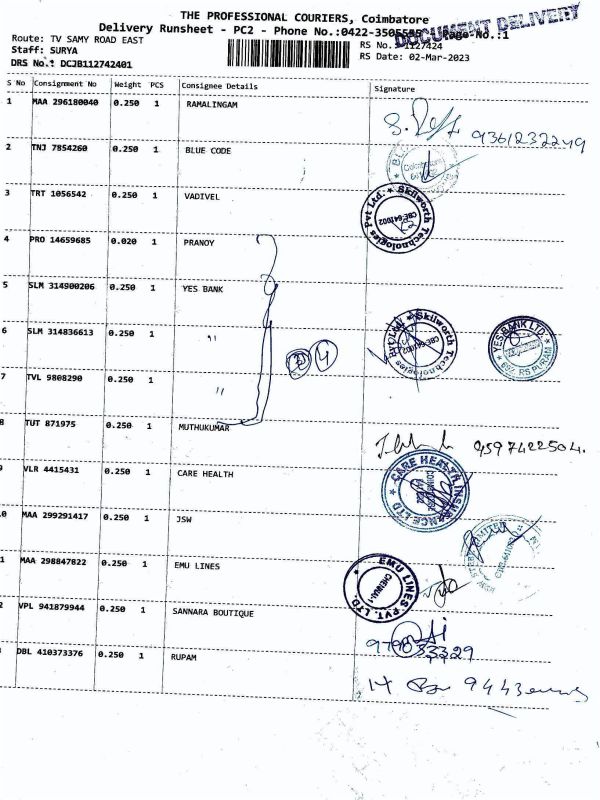 THE PROFESSIONAL COURIERS, Coimbatore
DOCUMENT DELIVERY
Delivery Runsheet - PC2 - Phone No.:0422-3505555 Page No.:1
Route: TV SAMY ROAD EAST
RS No.: 1127424
Staff: SURYA
RS Date: 02-Mar-2023
DRS No.: DCJB112742401
S No Consignment No Weight PCS Consignee Details Signature
1 MAA 296180040 0.250 1 RAMALINGAM
9361232249
2 TNJ 7854260 0.250 1 BLUE CODE
Coimbatore
3 TRT 1056542 0.250 1 VADIVEL
Skilworth Technologies Pvt Ltd. CBE-641002
4 PRO 14659685 0.020 1 PRANOY
5 SLM 314900206 0.250 1 YES BANK
6 SLM 314836613 0.250 1 "
Skilworth Technologies Pvt Ltd. CBE-641002
YES BANK LTD. RS PURAM
3 4
7 TVL 9808290 0.250 1 "
8 TUT 871975 0.250 1 MUTHUKUMAR
9597422504.
9 VLR 4415431 0.250 1 CARE HEALTH
CARE HEALTH INSURANCE LTD
COIMBATORE
0 MAA 299291417 0.250 1 JSW
LIMITED
1 MAA 298847822 0.250 1 EMU LINES
EMU LINES PVT. LTD.
CHENNAI-1
2 VPL 941879944 0.250 1 SANNARA BOUTIQUE
DBL 410373376 0.250 1 RUPAM